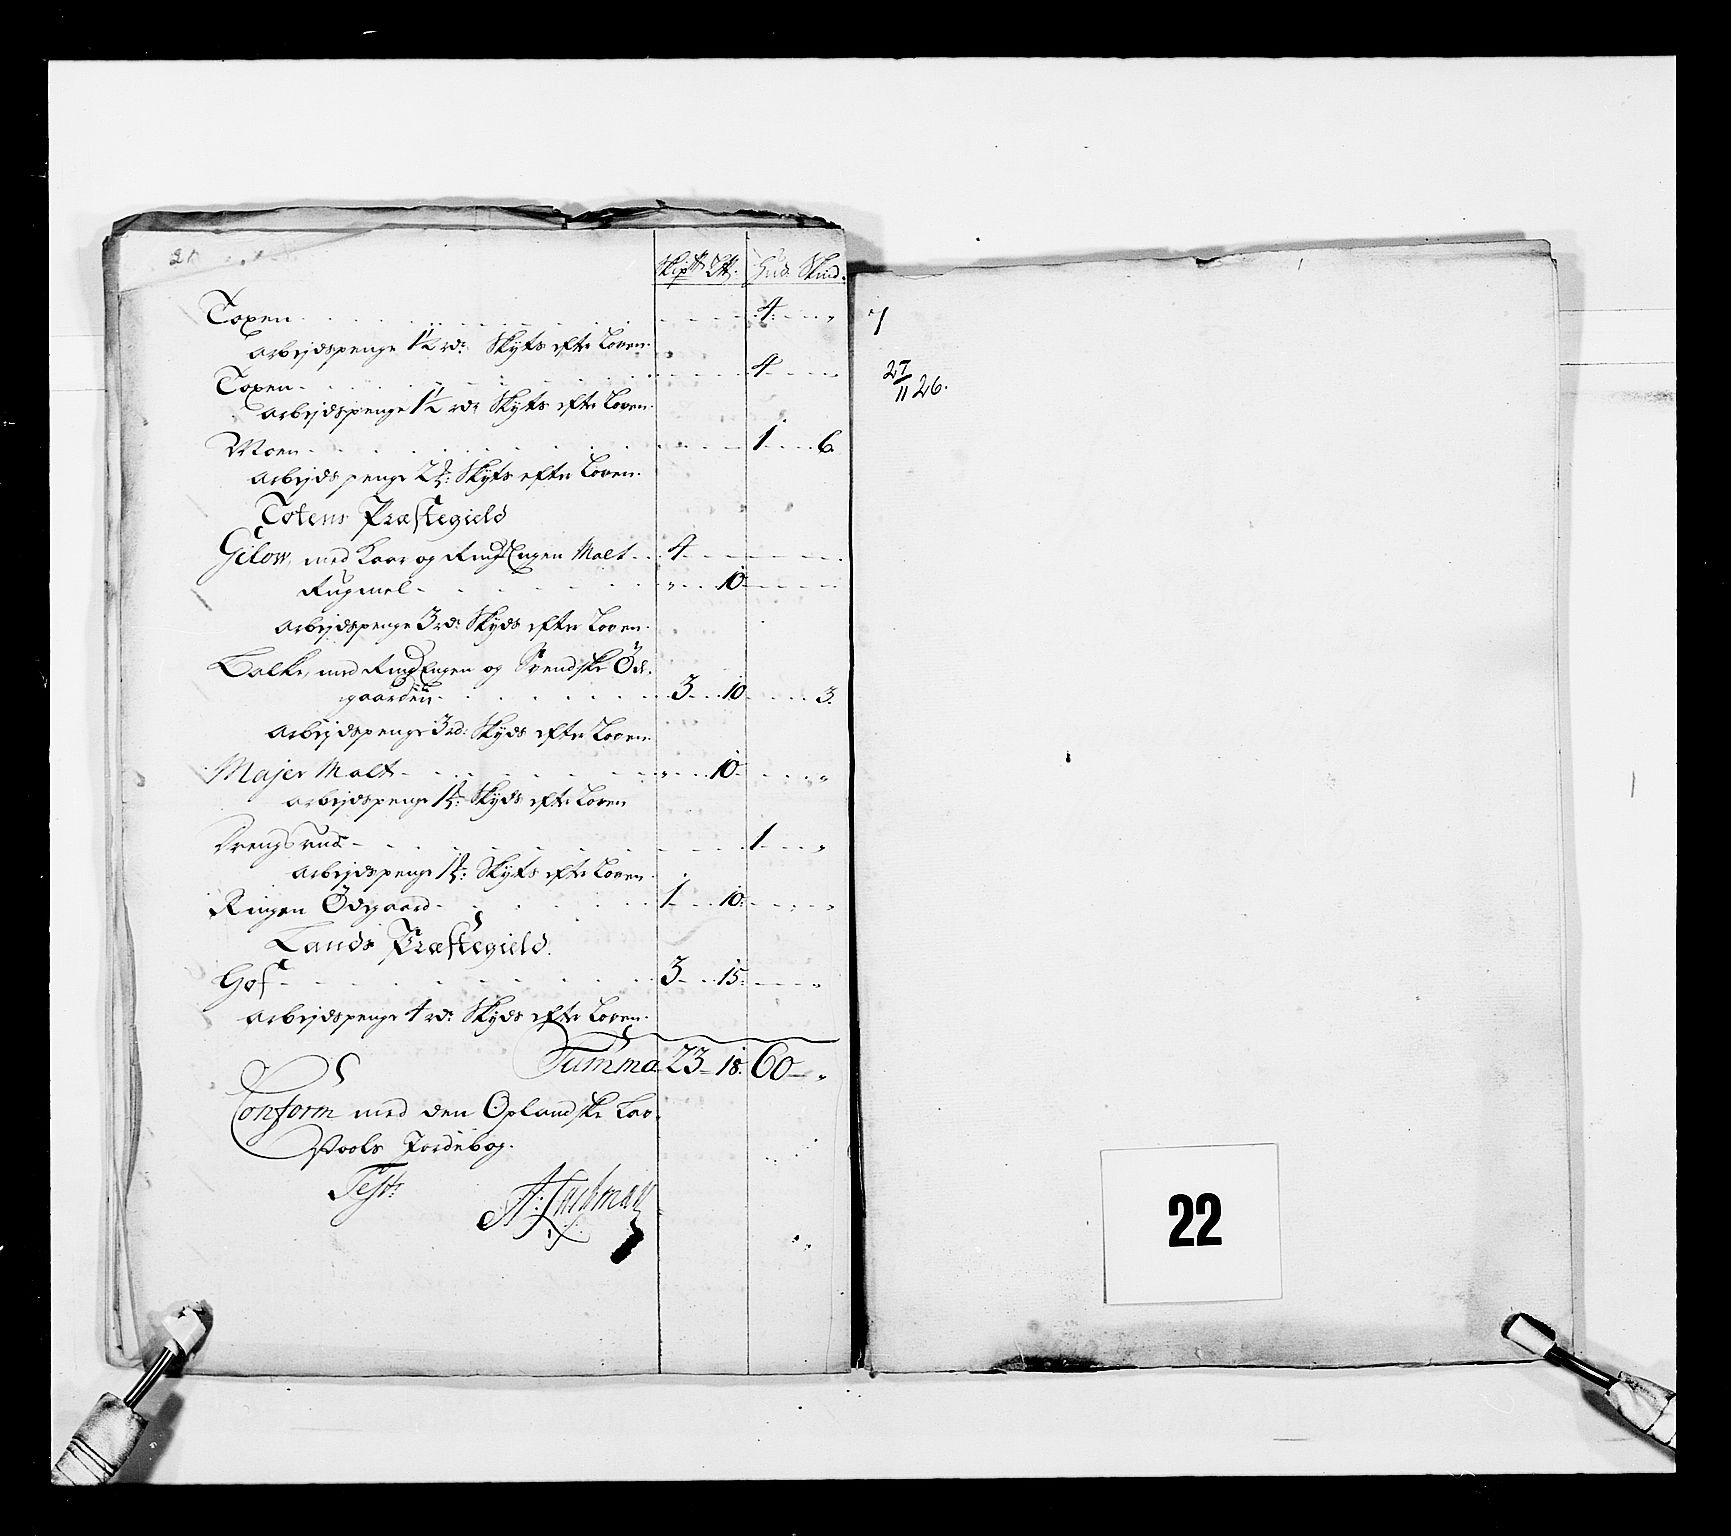 Skip℔ L℔. Hud. Skind.
Toxen - - - 4 - - "
Arbejdspenge 1½ rd: Skyts efter Loven.
Toxen - - - 4 - -
Arbejdspenge 1½ rdr Skyts efter Loven.
Moen - - - 1 - - 6.
Arbejdspenge 2 rd: Skyts efter Loven.
Totens Præstegield
Gilow, med Kaar og RingsEngen Malt - - 4 - - -
Rugmel - - - " - - 10 - - -
Arbejdspenge 3 rd: Skyds efter Loven.
Balke, med RingsEngen og Svendske Öde-
gaarden - - - 3 - - 10 - - - 3.
Arbejdspenge 3 rd: Skyds efter Loven.
Majer Malt - - - " - - 10 - - - "
Arbejdspenge 1 rd: Skyds efter Loven
Drengsrud - - - 1 - - "
Arbejdspenge 1 rd: Skyts efter Loven
Ringen Ödegaard - - - 1 - - 10 - - "
Lands Præstegield.
Hof - - - 3 - - 15 - - - "
Arbejdspenge 4 rd: Skyds efter Loven.
Summa 23 - 18. 60 - "
Conform med den Oplandske Lav-
Vools Jordebog.
Test:
7
27/11 26.
22